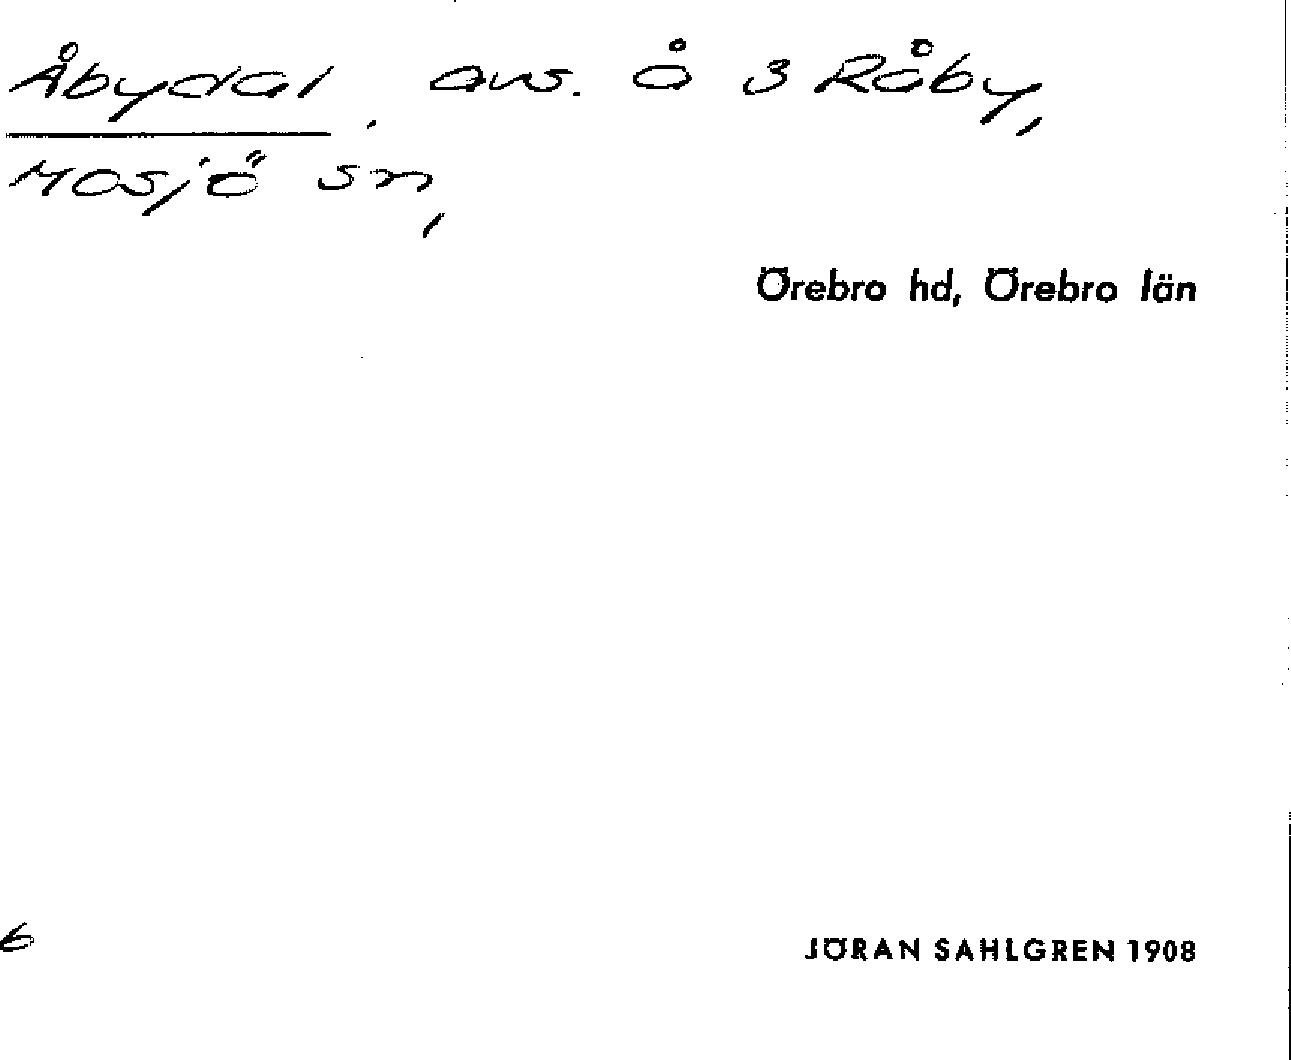 Åbydal, avs. å 3 Råby,
Mosjö sn,
Örebro hd, Örebro län
6
JÖRAN SAHLGREN 1908